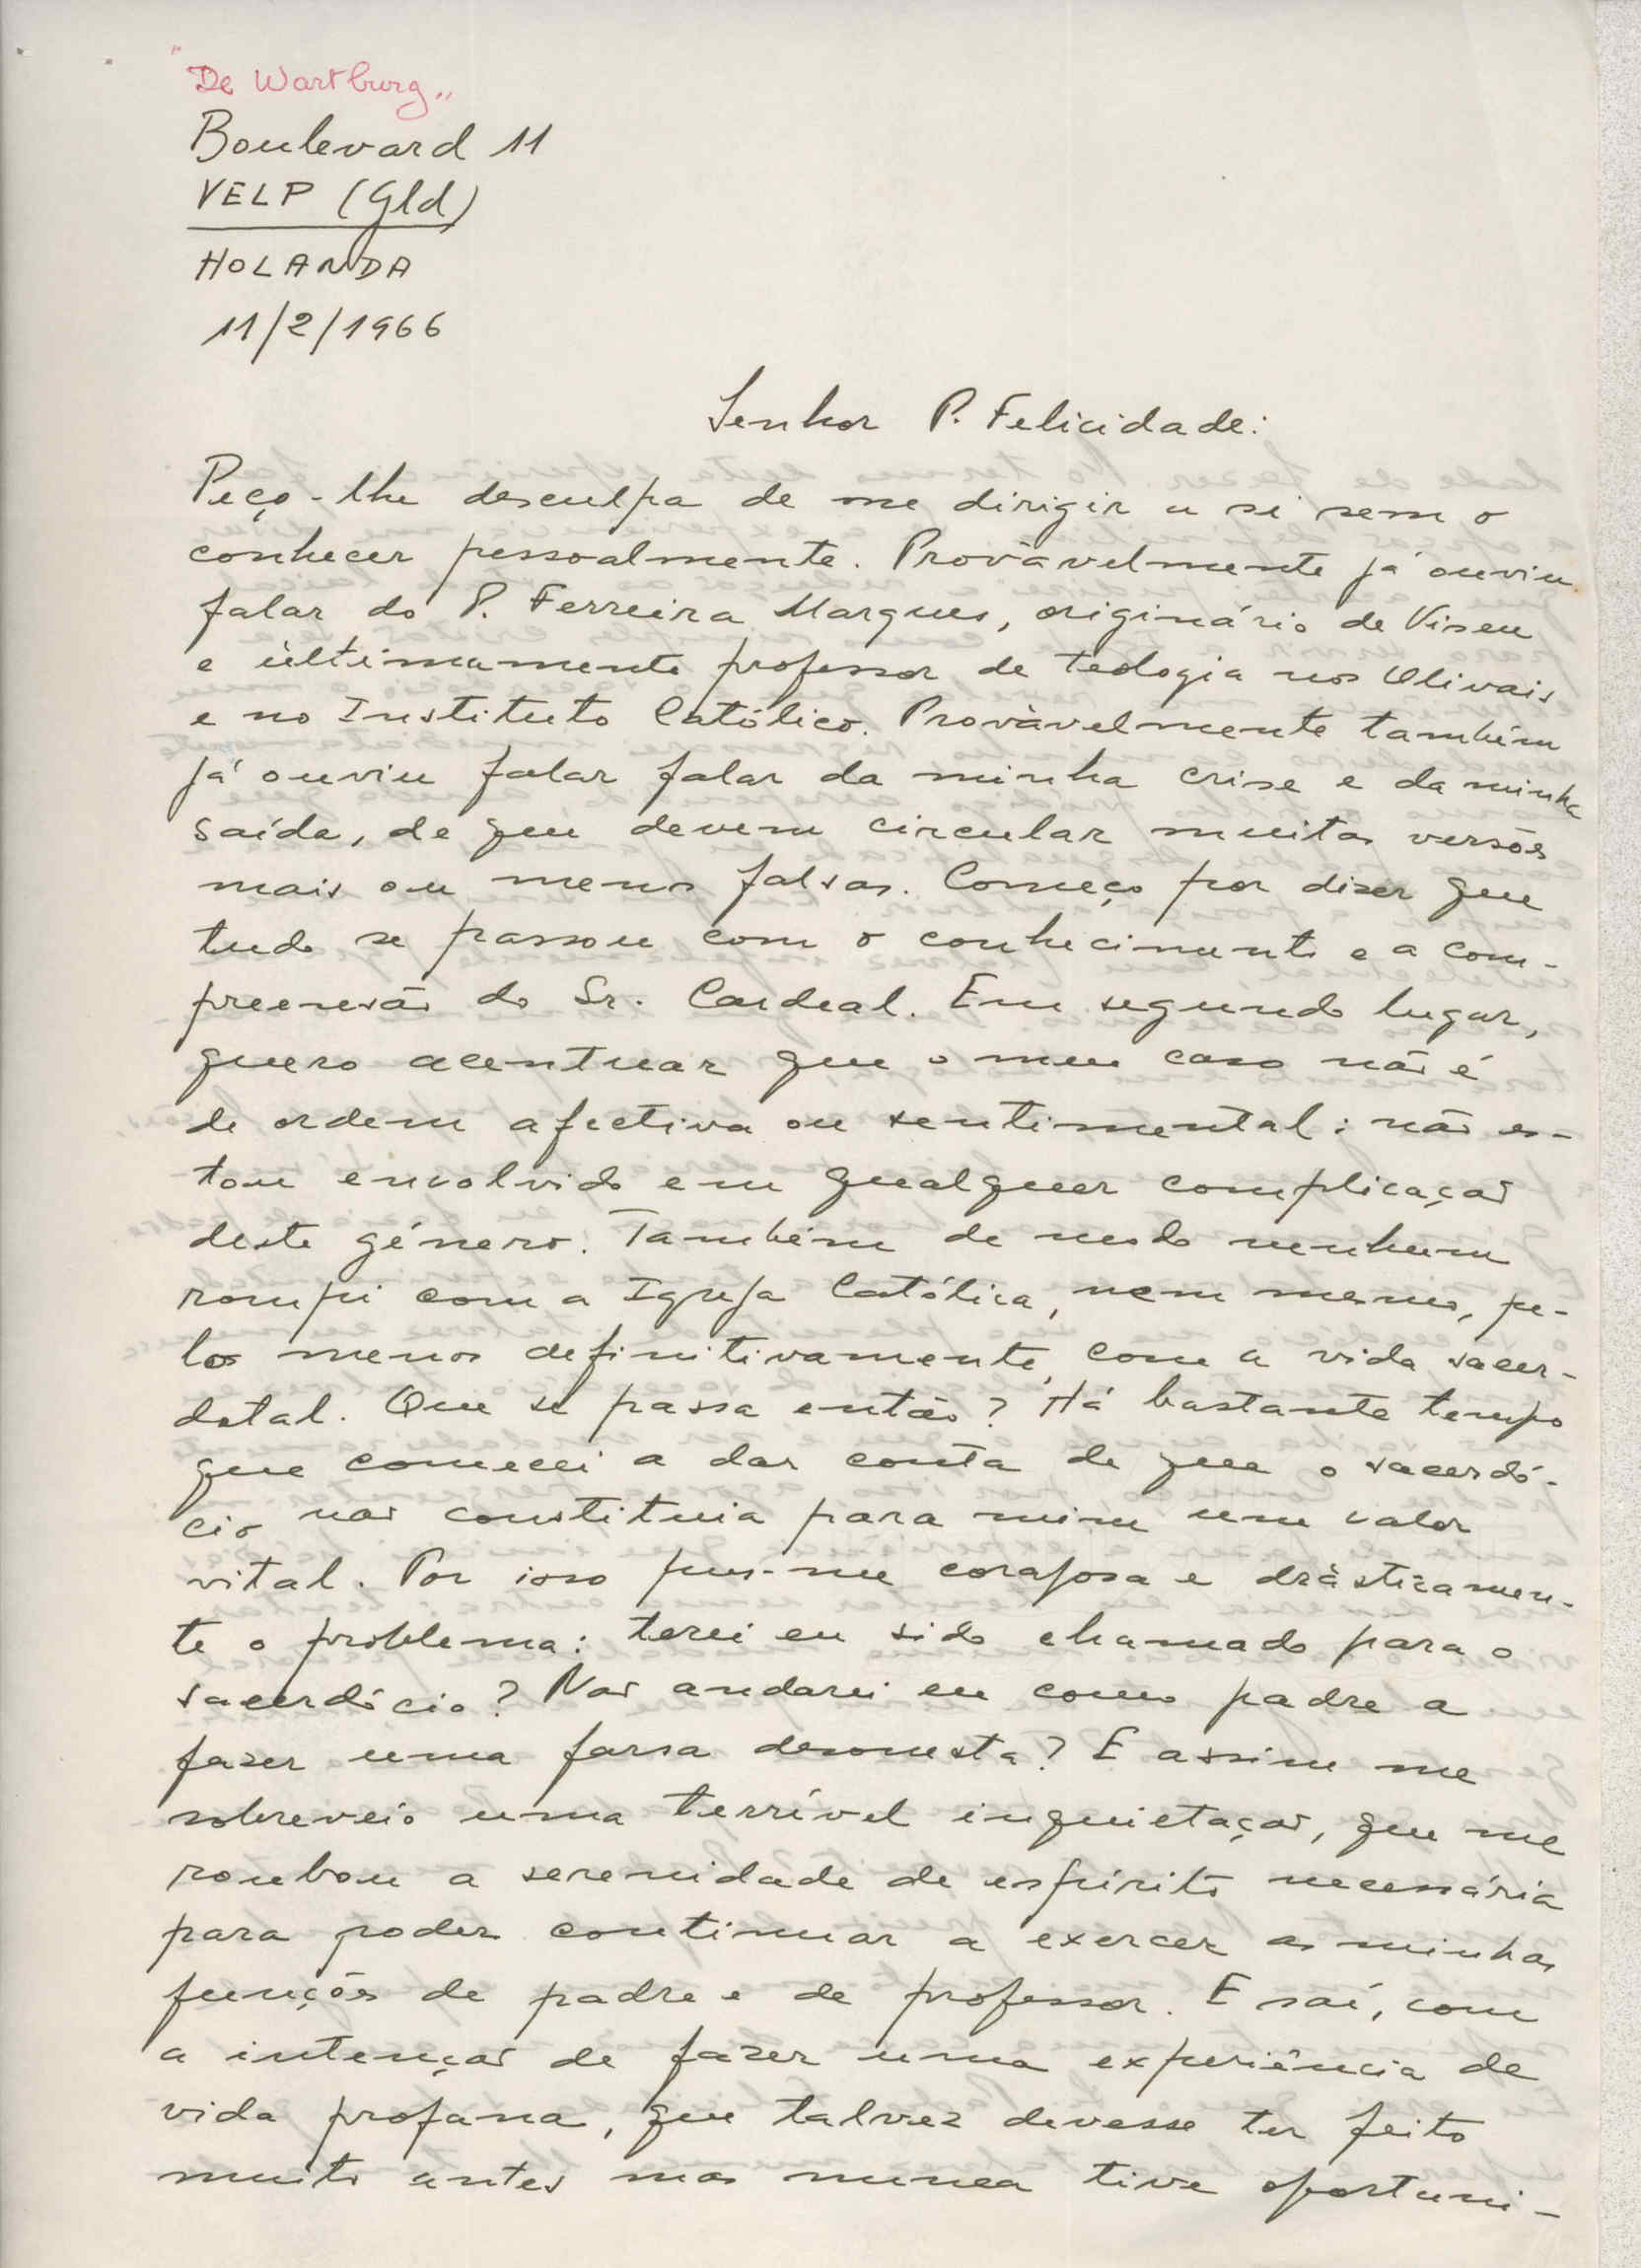 "De Wartburg"
Boulevard 11
VELP (Gld)
HOLANDA
11/2/1966
Senhor P. Felicidade:
Peço-lhe desculpa de me dirigir a si sem o
conhecer pessoalmente. Provàvelmente já ouviu
falar do P. Ferreira Marques, originário de Viseu
e ùltimamente professor de teologia nos Olivais
e no Instituto Católico. Provàvelmente também
já ouviu falar falar da minha crise e da minha
saída, de que devem circular muitas versões
mais ou menos falsas. Começo por dizer que
tudo se passou com o conhecimento e a com-
preensão do Sr. Cardeal. Em segundo lugar,
quero acentuar que o meu caso não é
de ordem afectiva ou sentimental: não es-
tou envolvido em qualquer complicação
deste género. Também de modo nenhum
rompi com a Igreja Católica, nem mesmo, pe-
los menos definitivamente, com a vida sacer-
dotal. Que se passa então? Há bastante tempo
que comecei a dar conta de que o sacerdó-
cio não constituia para mim um valor
vital. Por isso pus-me corajosa e dràsticamen-
te o problema: terei eu sido chamado para o
sacerdócio? Não andarei eu como padre a
fazer uma farsa desonesta? E assim me
sobreveio uma terrível inquietação, que me
roubou a serenidade de espírito necessária
para poder continuar a exercer as minhas
funções de padre e de professor. E saí, com
a intenção de fazer uma experiência de
vida profana, que talvez devesse ter feito
muito antes mas nunca tive oportuni-